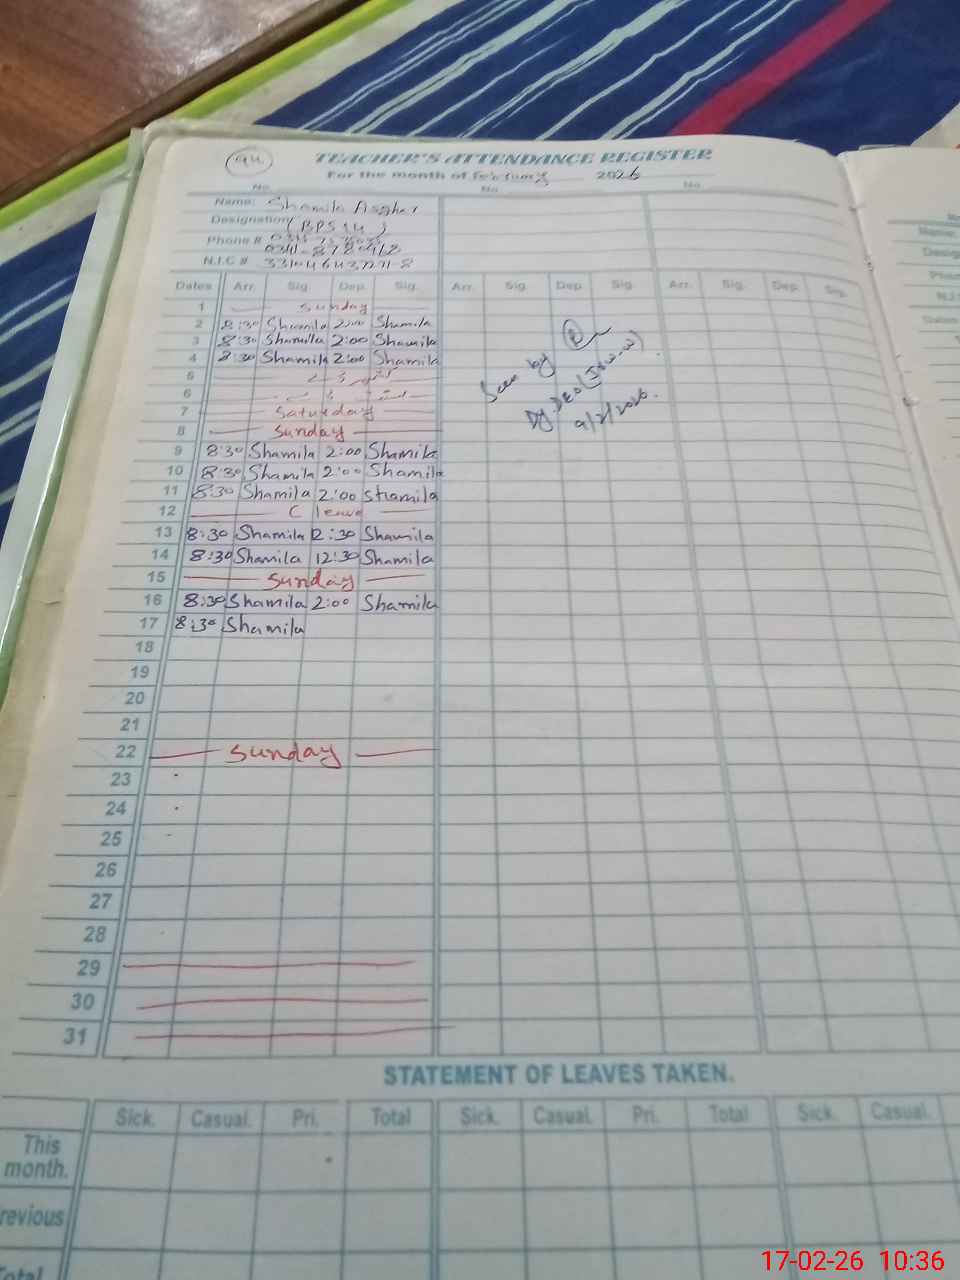 94
TEACHER'S ATTENDANCE REGISTER
For the month of February 2026
No. No. No.
Name: Shamila Asghar
Designation (BPS 14)
Phone #
N.I.C #
Dates Arr. Sig. Dep. Sig. Arr. Sig. Dep. Sig. Arr. Sig. Dep. Sig.
1 Sunday
2 8:30 Shamila 2:00 Shamila
3 8:30 Shamila 2:00 Shamila
4 8:30 Shamila 2:00 Shamila
5
6
7 Saturday
8 Sunday
9 8:30 Shamila 2:00 Shamila
10 8:30 Shamila 2:00 Shamila
11 8:30 Shamila 2:00 Shamila
12 C leave
13 8:30 Shamila 12:30 Shamila
14 8:30 Shamila 12:30 Shamila
15 Sunday
16 8:30 Shamila 2:00 Shamila
17 8:30 Shamila
18
19
20
21
22 Sunday
23
24
25
26
27
28
29
30
31
Seen by
Dy. DEO
9/2/2026.
STATEMENT OF LEAVES TAKEN.
Sick. Casual. Pri. Total Sick. Casual. Pri. Total Sick. Casual.
This
month.
revious
Total
17-02-26 10:36